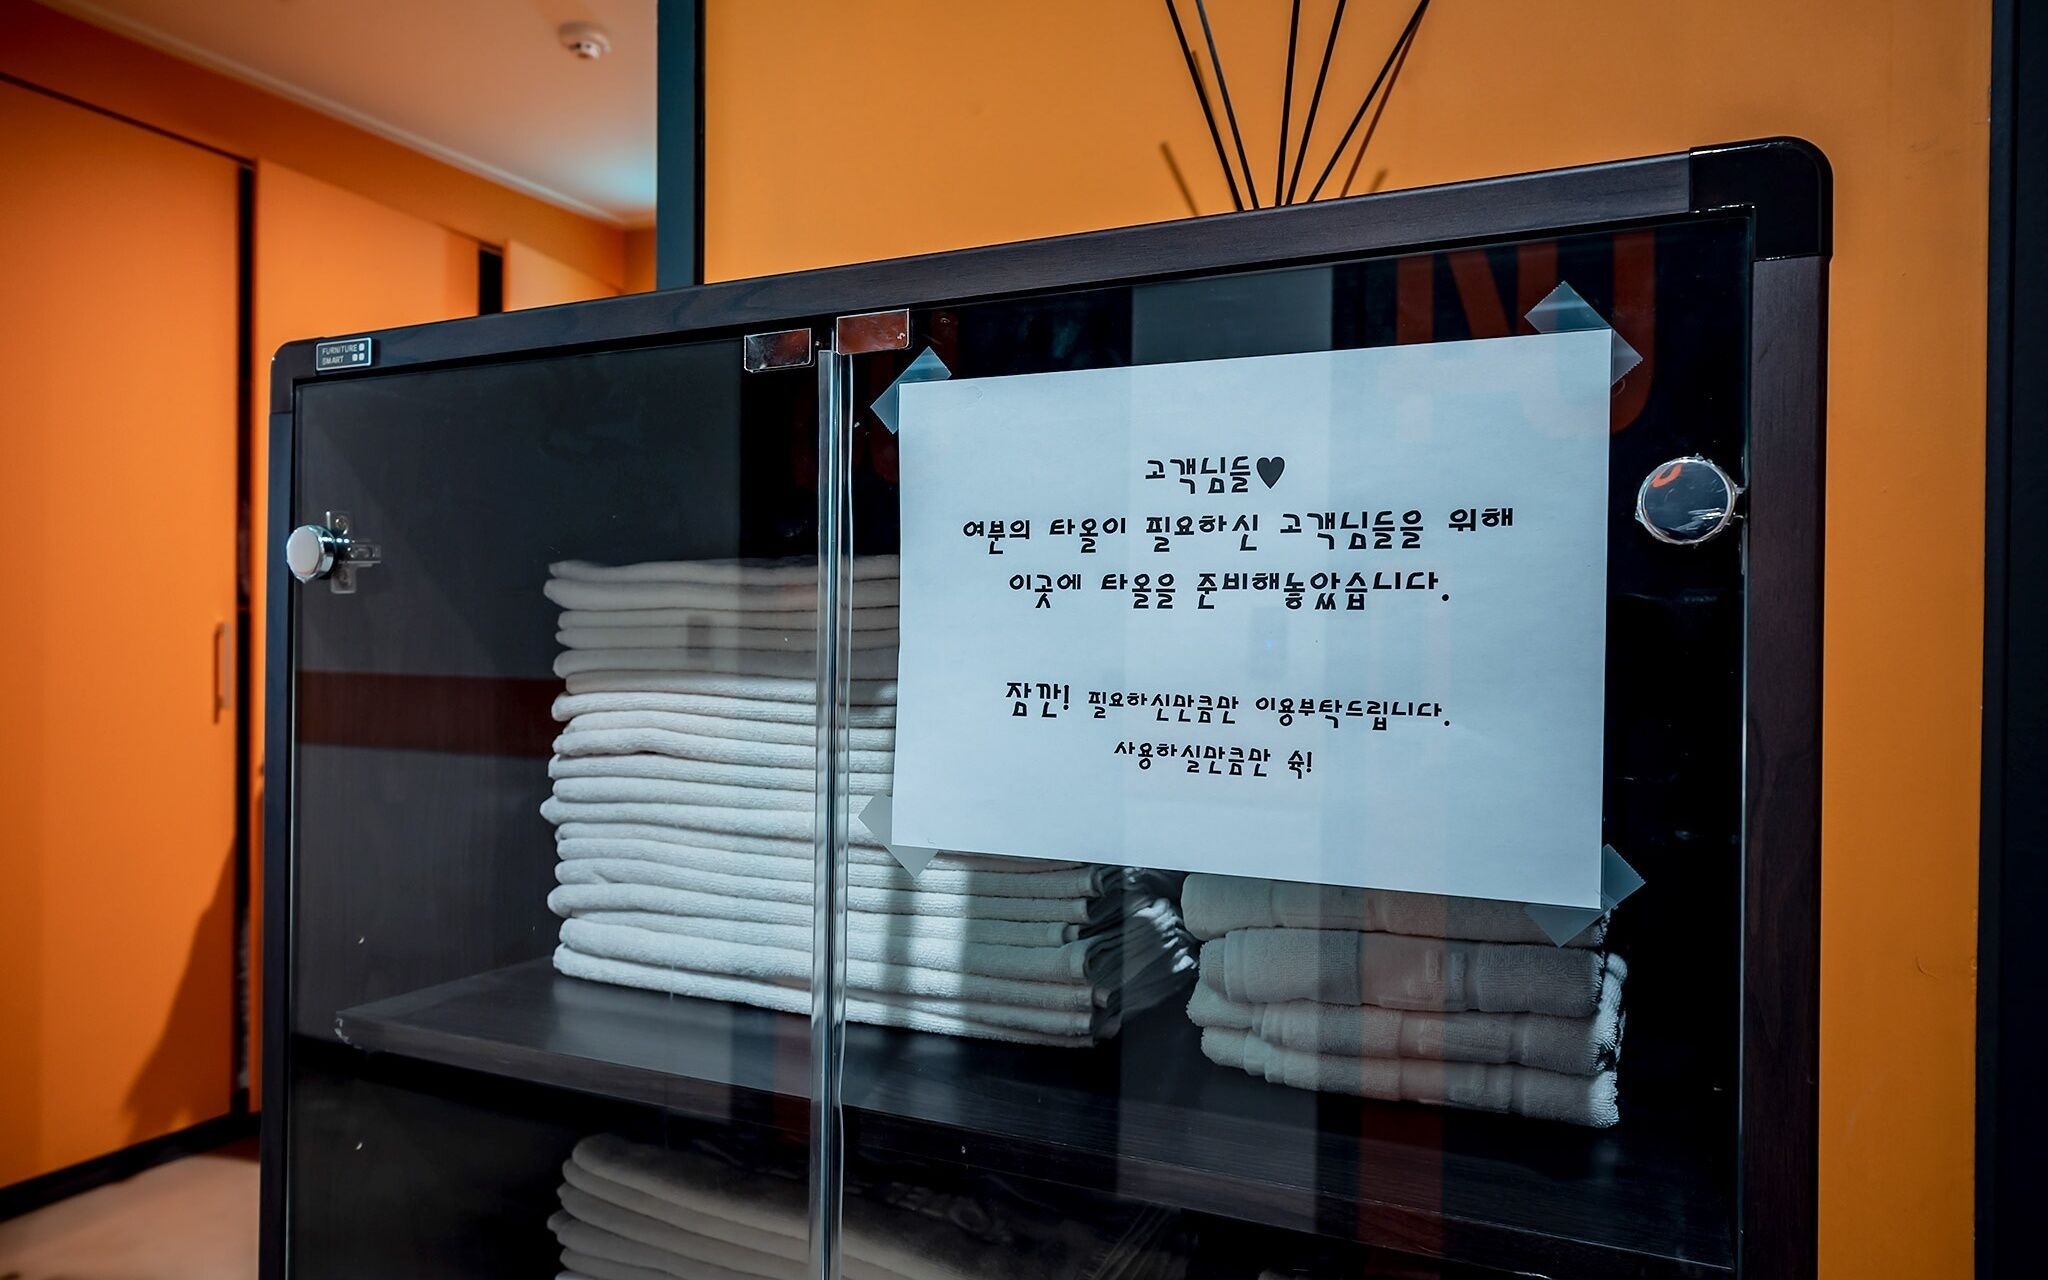 FURNITURE
SMART
고객님들♥
여분의 타올이 필요하신 고객님들을 위해
이곳에 타올을 준비해놓았습니다.
잠깐! 필요하신만큼만 이용부탁드립니다.
사용하실만큼만 슉!